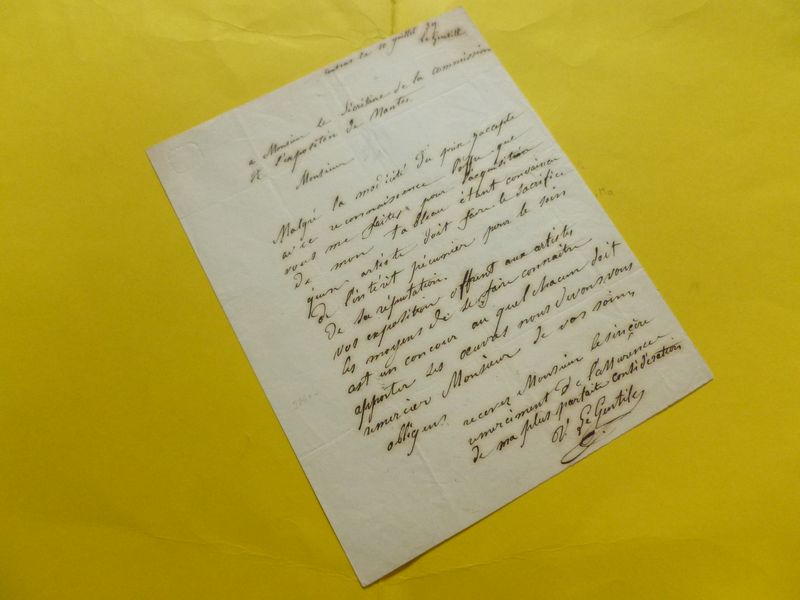 ce 10 juillet 39
Le Gentil
a Monsieur le Sécrétaire de la commission
de l'exposition de Nantes.
Monsieur
Malgré la modicité du prix j'accepte
avec reconnaissance l'offre que
vous me faites pour l'acquisition
de mon tableau étant convaincu
qu'un artiste doit faire le sacrifice
de l'intérêt pécunier pour le soin
de sa réputation.
vos exposition offrent aux artistes
les moyens de se faire connaitre
est un concour au quel chacun doit
apporter ses œuvres nous devons vous
remercier Monsieur de vos soins
obligens recevez Monsieur le sincère
remerciment de l'assurence
de ma plus parfaite considération
Le Gentile